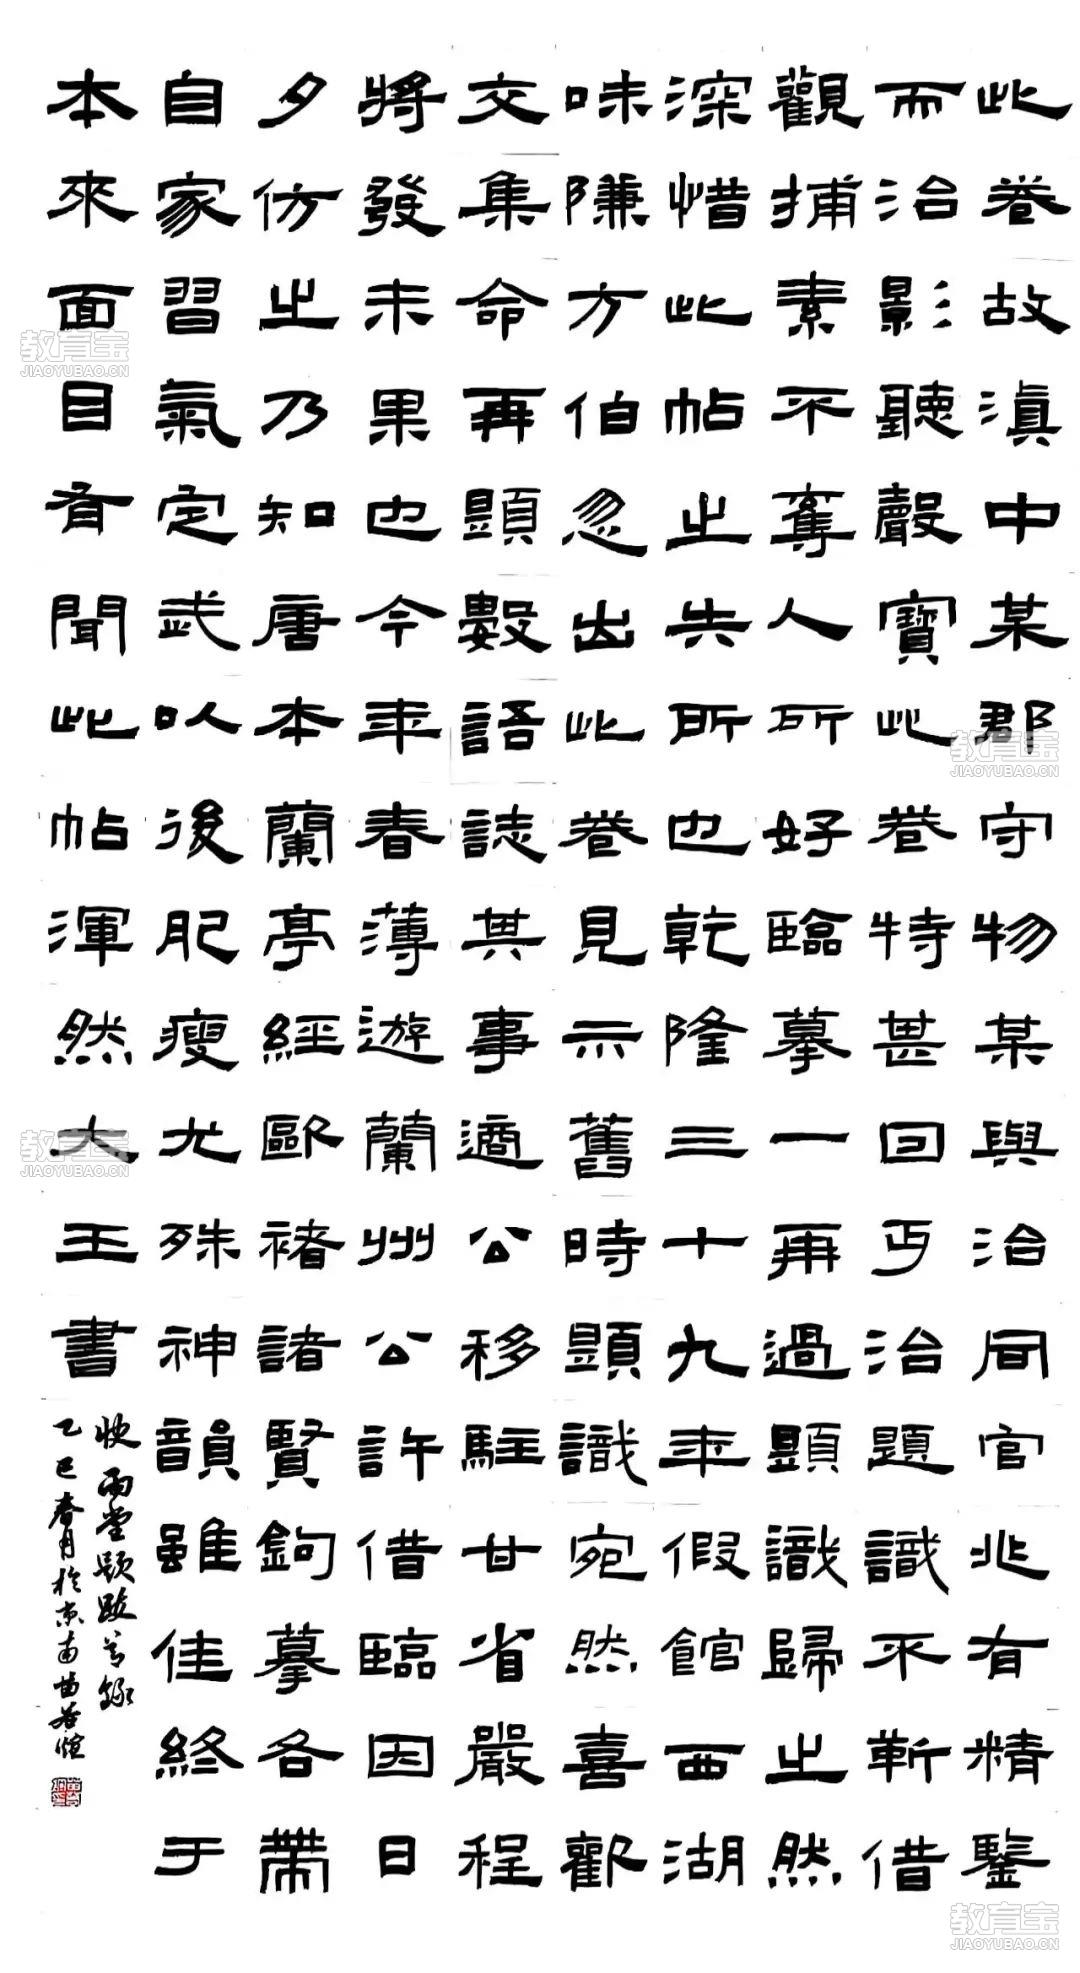 此卷故滇中某郡守物某與治同官兆有精鑒
而治影聽聲寶此卷特甚回丐治題識不靳借
觀捕素不奪人所好臨摹一再過題識歸之然
深惜此帖之失所也乾隆三十九年假館西湖
味隒方伯忽出此卷見示舊時題識宛然喜歡
交集命再題數語誌其事適公移駐甘省嚴程
將發未果也今年春薄遊蘭州公許借臨因日
夕仿之乃知唐本蘭亭經歐褚諸賢鉤摹各帶
自家習氣定武以後肥瘦尤殊神韻雖佳終于
本來面目有聞此帖渾然大王書
快雨堂題跋節錄
乙巳春月於京南苗谷愷
教育宝
JIAOYUBAO.CN
教育宝
JIAOYUBAO.CN
教育宝
JIAOYUBAO.CN
教育宝
JIAOYUBAO.CN